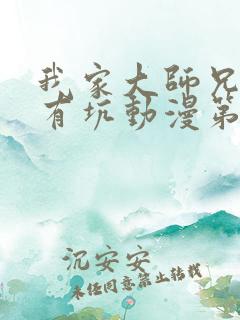 我家大師兄
有坑動漫第
沉安安
未经同意禁止转载